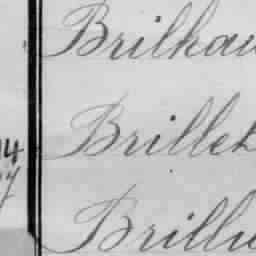 Brilhau
14 Brillet
Brillu